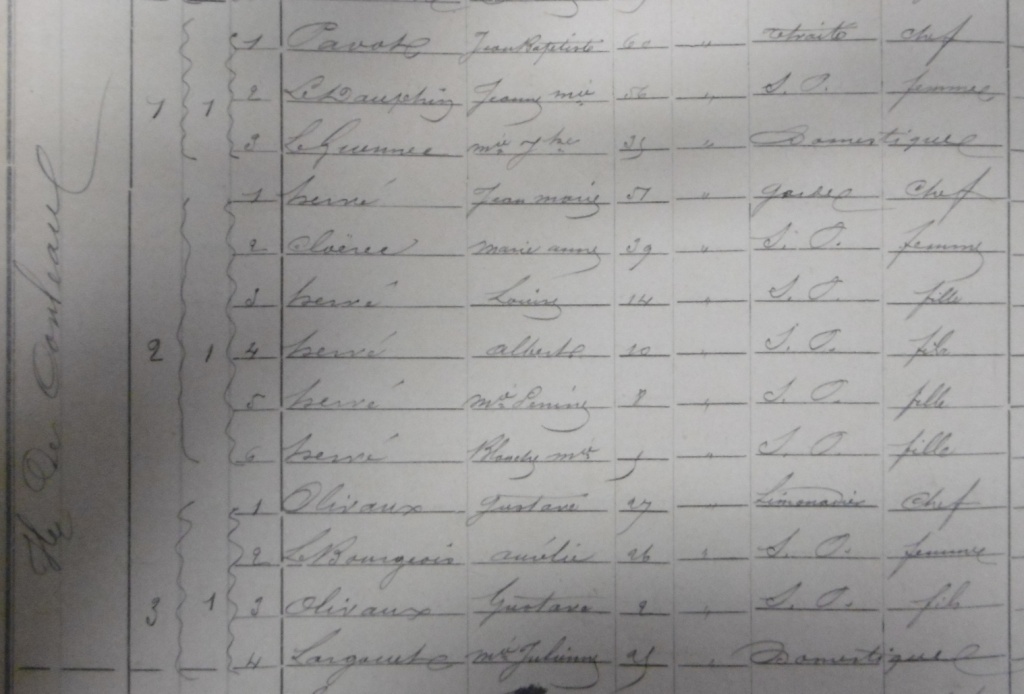 1 Pavot Jean Baptiste 60 " retraité chef
1 1 2 Le Dauphin Jeanne Mie 56 " S. O. femme
3 Le Guennec Mie Jhe 35 " Domestique
1 hervé Jean marie 51 " garde Chef
2 Cloerec marie anne 39 " S. O. femme
3 hervé Louise 14 " S. O. fille
2 1 4 hervé albert 10 " S. O. fils
5 hervé Mie 8 " S. O. fille
6 hervé Blanche Mie " S. O. fille
1 Olivaux Gustave 27 " Limonadier Chef
2 Le Bourgeois aurélie 26 " S. O. femme
3 1 3 Olivaux Gustave 2 " S. O. fils
4 Mie Julienne 25 " Domestique
Ile De